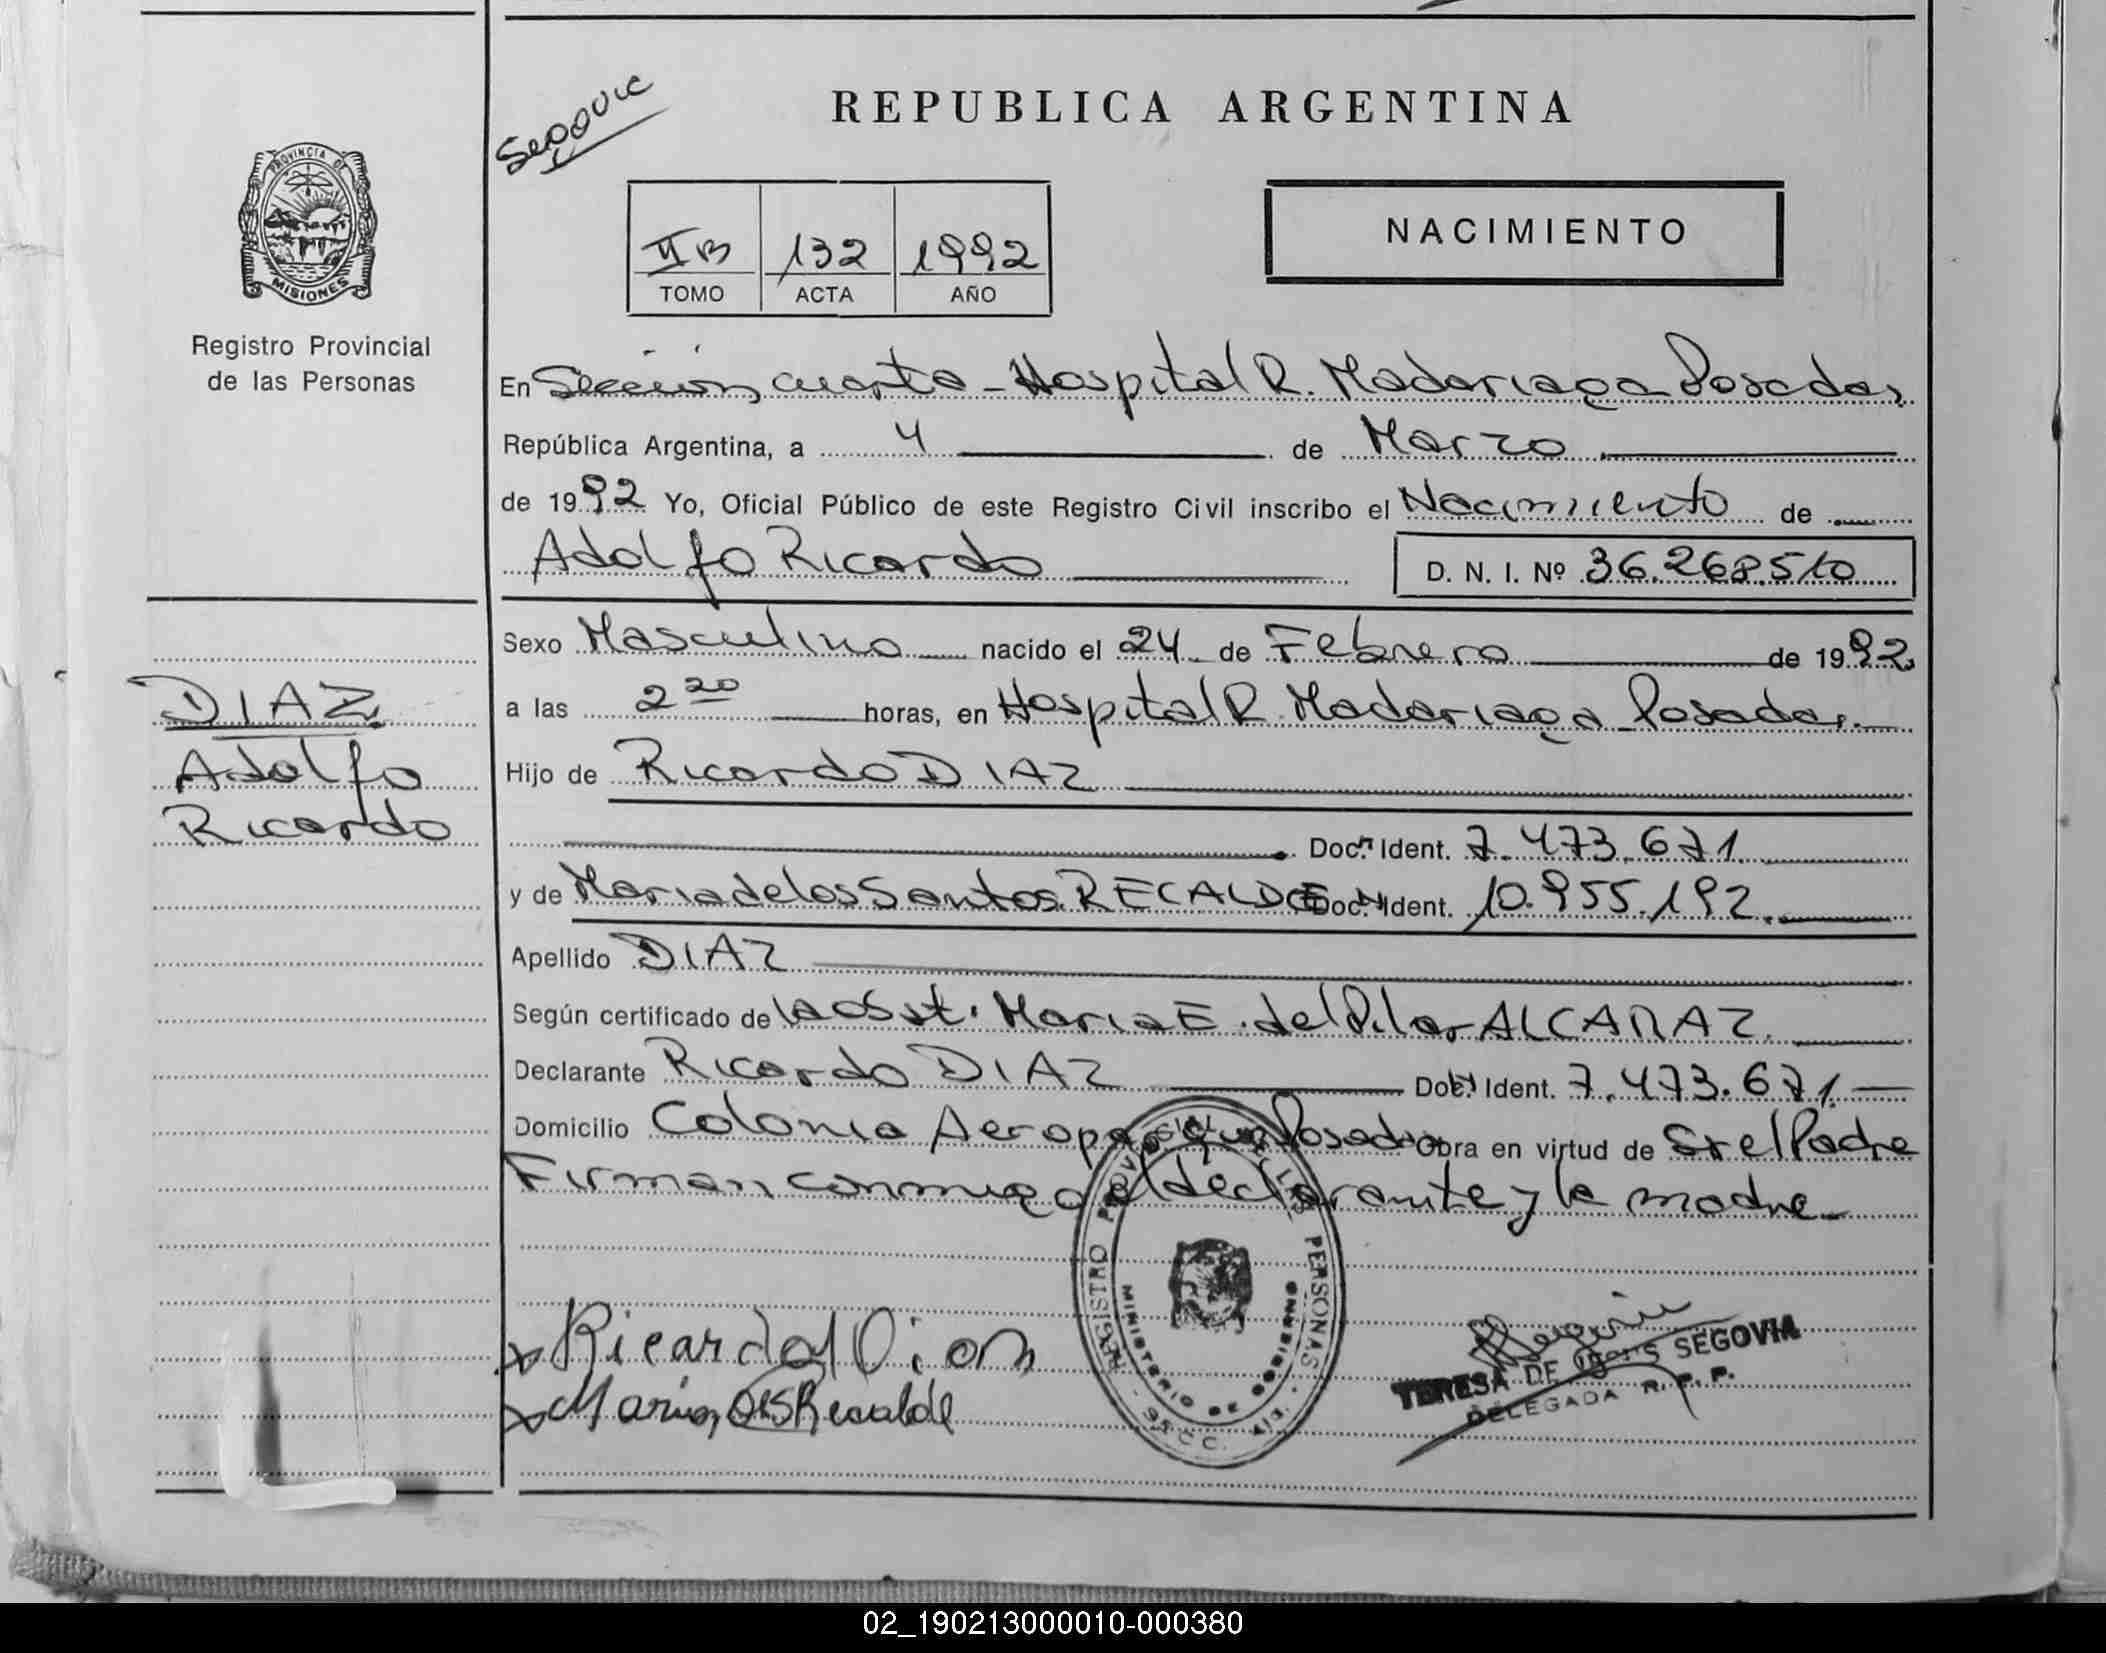 REPUBLICA ARGENTINA
PROVINCIA DE MISIONES
Registro Provincial
de las Personas
II B 132 1992
TOMO ACTA AÑO
NACIMIENTO
En Sección cuarta - Hospital R. Madariaga Posadas
República Argentina, a 4 de Marzo
de 1992 Yo, Oficial Público de este Registro Civil inscribo el Nacimiento de
Adolfo Ricardo D. N. I. Nº 36.268.510
Sexo Masculino nacido el 24 de Febrero de 1992
a las 2 20 horas, en Hospital R. Madariaga Posadas.
Hijo de Ricardo DIAZ
Doc. Ident. 7.473.671
y de Maria de los Santos RECALDE Doc. Ident. 10.955.192
Apellido DIAZ
Según certificado de la Obst. Maria E. del Pilar ALCARAZ.
Declarante Ricardo DIAZ Doc. Ident. 7.473.671
Domicilio Colonia Aeroparque Posadas Obra en virtud de Sr el Padre
Firman conmigo el declarante y la madre
DIAZ
Adolfo
Ricardo
REGISTRO PROVINCIAL DE LAS PERSONAS
MINISTERIO DE GOBIERNO
Ricardo Dias
Maria DLS Recalde
TERESA DE SEGOVIA
DELEGADA R. P. P.
02_190213000010-000380